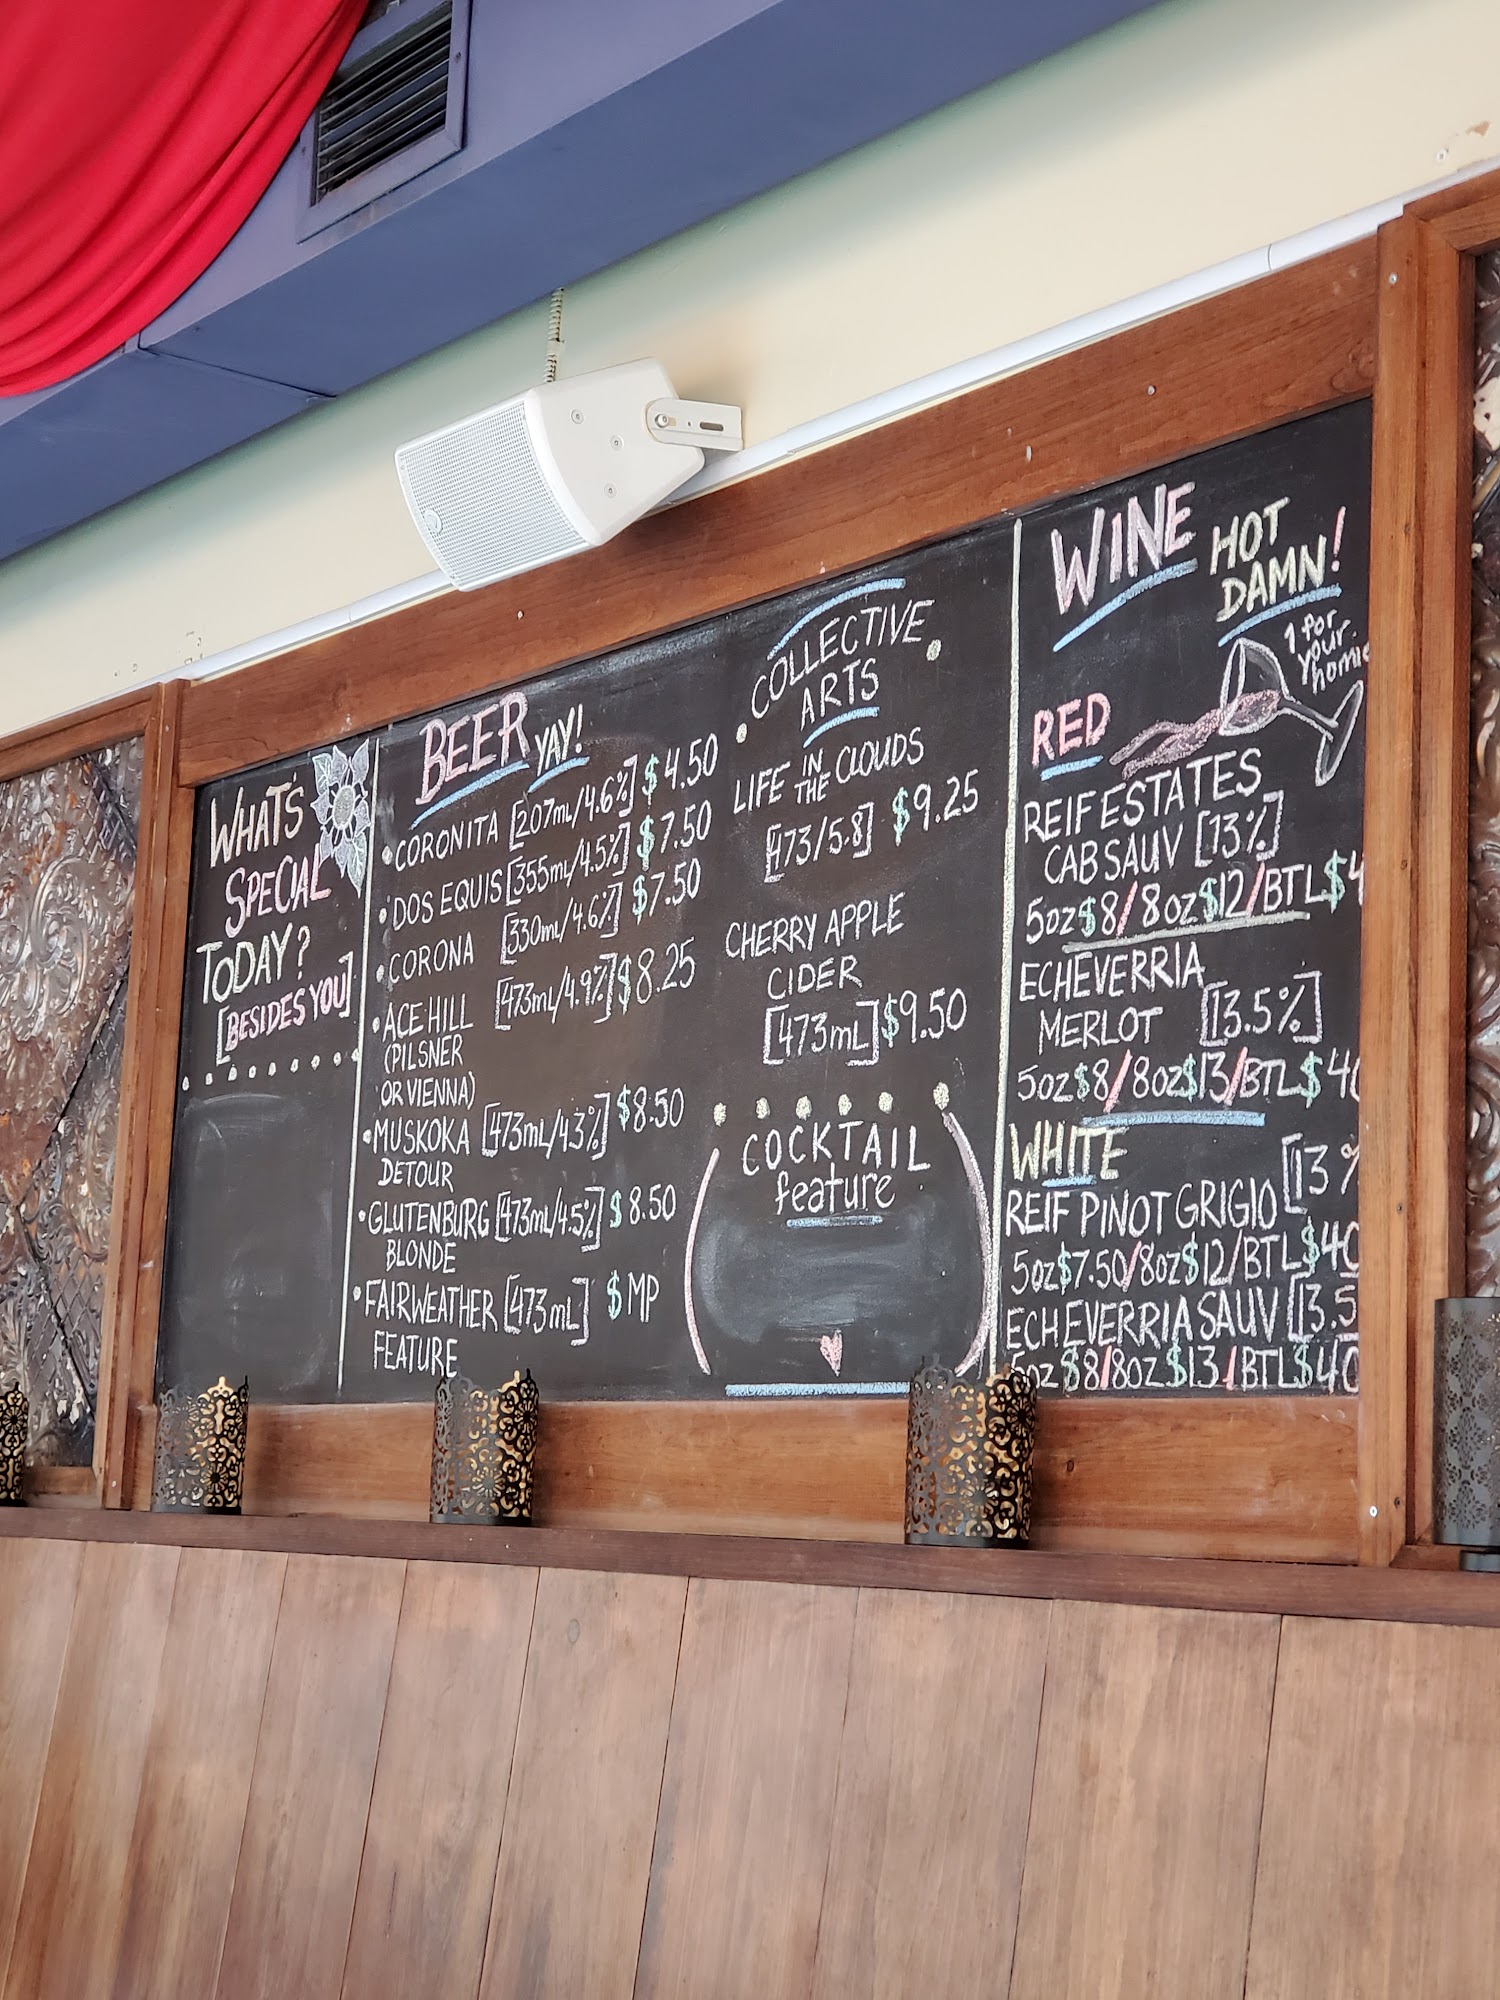 WHAT'S
SPECIAL
TODAY?
[BESIDES YOU]
BEER YAY!
• CORONITA [207mL/4.6%] $4.50
• DOS EQUIS [355mL/4.5%] $7.50
• CORONA [330mL/4.6%] $7.50
• ACE HILL [473mL/4.9%] $8.25
(PILSNER
OR VIENNA)
• MUSKOKA [473mL/4.3%] $8.50
DETOUR
• GLUTENBURG [473mL/4.5%] $8.50
BLONDE
• FAIRWEATHER [473mL] $MP
FEATURE
COLLECTIVE
ARTS
LIFE IN THE CLOUDS
[473/5.8] $9.25
CHERRY APPLE
CIDER
[473mL] $9.50
COCKTAIL
feature
WINE HOT
DAMN!
1 for
your
homie
RED
REIF ESTATES
CAB SAUV [13%]
5oz $8/8oz $12/BTL $4
ECHEVERRIA
MERLOT [13.5%]
5oz $8/8oz $13/BTL $40
WHITE
REIF PINOT GRIGIO [13%
5oz $7.50/8oz $12/BTL $40
ECHEVERRIA SAUV [13.5
5oz $8/8oz $13/BTL $40